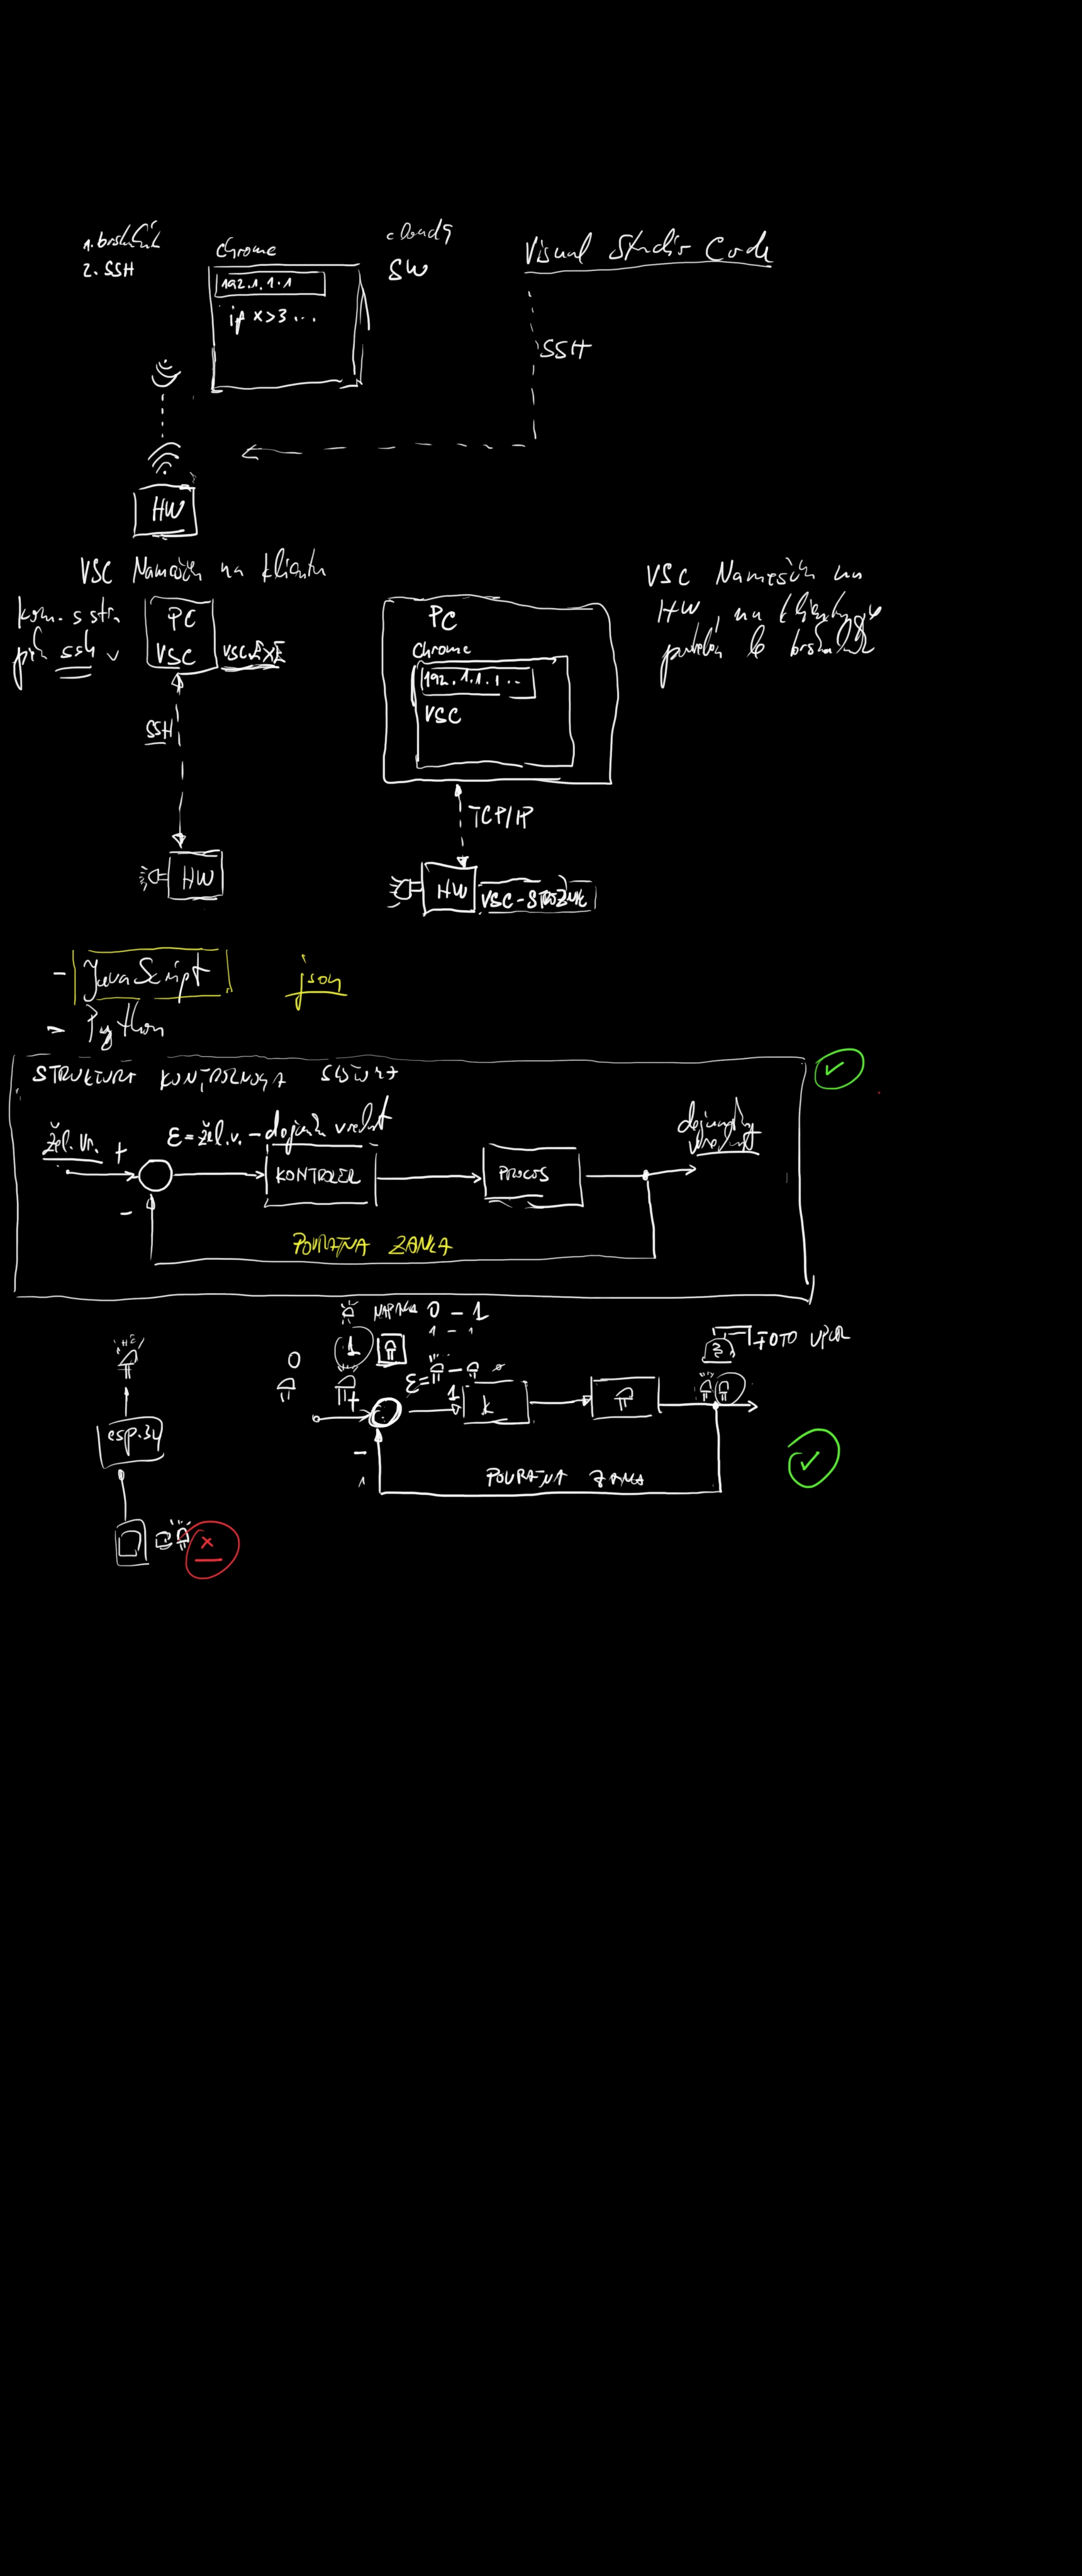 1. brskalnik
2. SSH
Chrome
192.1.1.1
if x>3...
cloud9
SW
Visual Studio Code
SSH
HW
VSC Nameščen na klientu
kom. s str.
prek ssh v
PC
VSC
VSC.EXE
SSH
HW
PC
Chrome
192.1.1.1...
VSC
TCP/IP
HW
VSC-STREŽNIK
VSC Nameščen na
HW, na klientu je
potreben le brskalnik
- JavaScript
json
- Python
STRUKTURA KONTROLNEGA SISTEMA
žel. vr.
+
-
ε = žel. v. - dejanska vrednost
KONTROLER
PROCES
dejanska
vrednost
POVRATNA ZANKA
NAPAKA 0 - 1
1 - 1
0
1
+
ε =
-
1
k
FOTO UPOR
-
1
POVRATNA ZANKA
esp.32
x